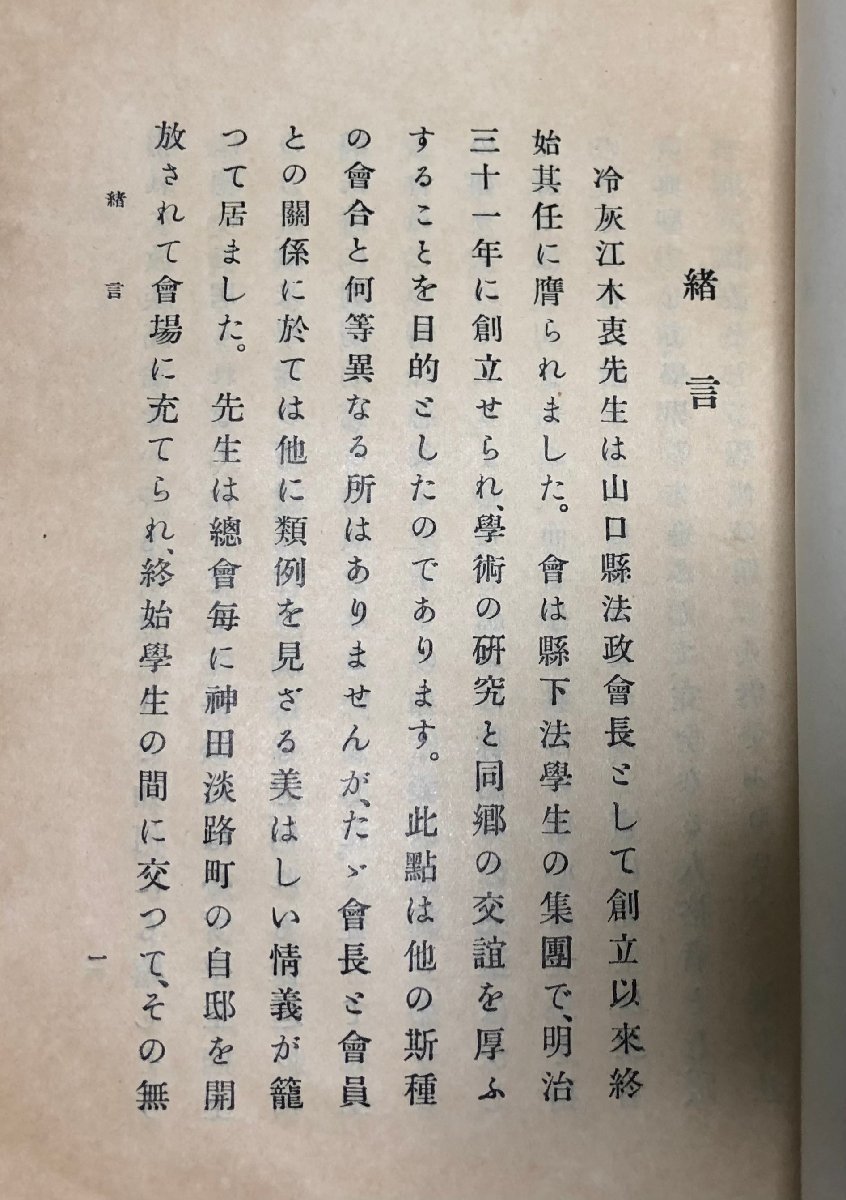 緒言
冷灰江木衷先生は山口縣法政會長として創立以來終
始其任に膺られました。會は縣下法學生の集團で、明治
三十一年に創立せられ、學術の研究と同鄕の交誼を厚ふ
することを目的としたのであります。此點は他の斯種
の會合と何等異なる所はありませんが、たゞ會長と會員
との關係に於ては他に類例を見ざる美はしい情義が籠
つて居ました。先生は總會每に神田淡路町の自邸を開
放されて會場に充てられ、終始學生の間に交つて、その無
緒言
一